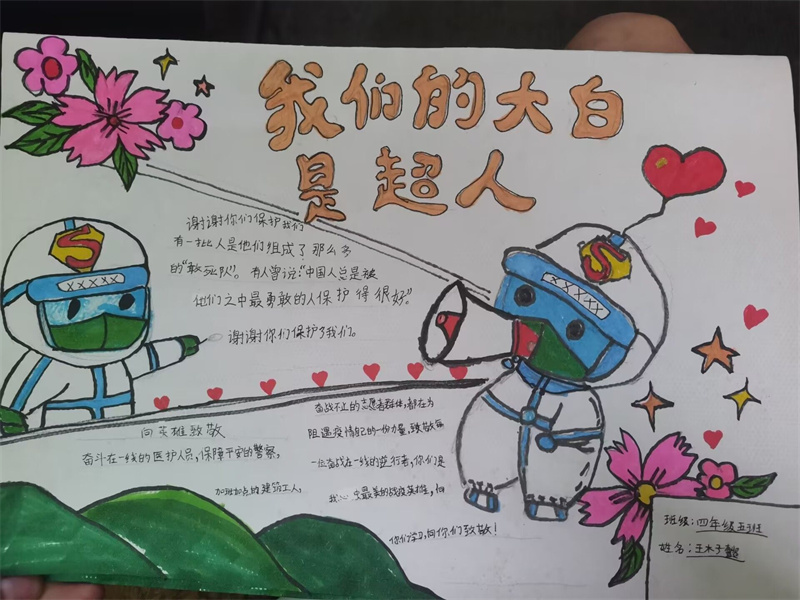 我们的大白
是超人
谢谢你们保护我们
有一批人是他们组成了那么多
的“敢死队”。有人曾说:“中国人总是被
他们之中最勇敢的人保护得很好”。
谢谢你们保护了我们。
向英雄致敬
奋斗在一线的医护人员,保障平安的警察,
加班加点的建筑工人,
奋战不止的志愿者群体,都在为
阻遏疫情自己的一份力量,致敬每
一位奋战在一线的逆行者,你们是
我心最美的战疫英雄,向
你们学习,向你们致敬!
班级:四年级五班
姓名:王木子懿
S
S